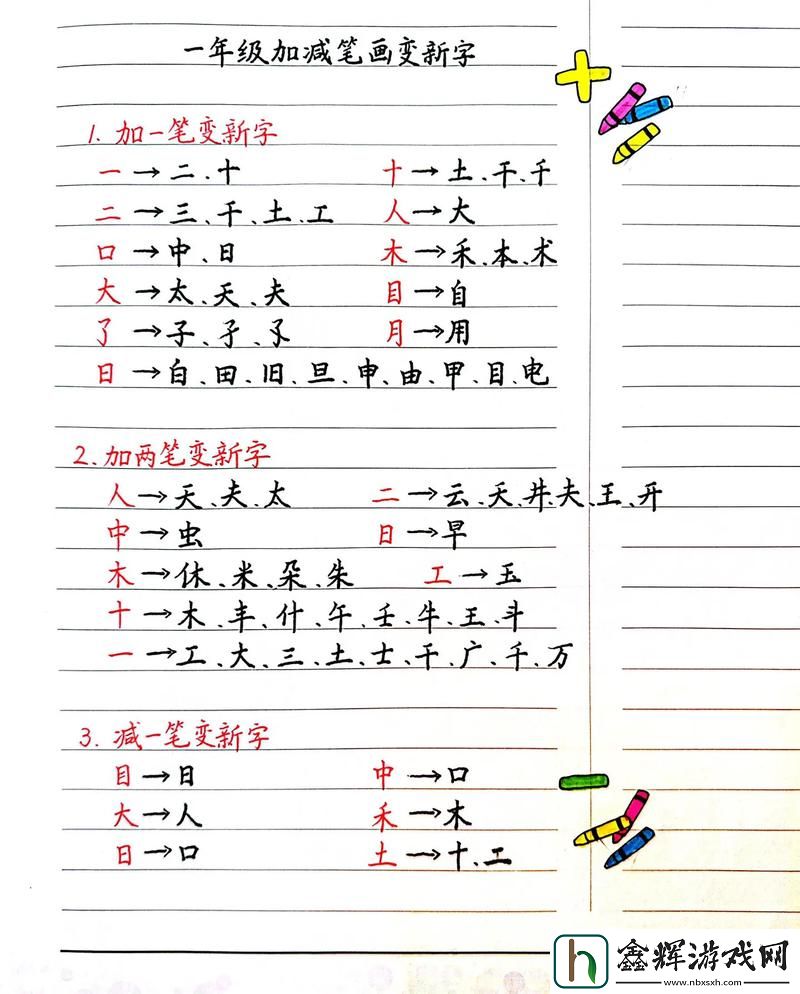 一年级加减笔画变新字
1. 加一笔变新字
一→二、十 十→土、干、千
二→三、干、土、工 人→大
口→中、日 木→禾、本、术
大→太、天、夫 目→自
了→子、孑、孓 月→用
日→白、田、旧、旦、申、由、甲、目、电
2. 加两笔变新字
人→天、夫、太 二→云、天、井、夫、王、开
中→虫 日→早
木→休、米、朵、朱 工→玉
十→木、丰、什、午、壬、牛、王、斗
一→工、大、三、土、士、干、广、千、万
3. 减一笔变新字
目→日 中→口
大→人 禾→木
日→口 土→十、工
h 鑫辉游戏网
www.nbxsxh.com